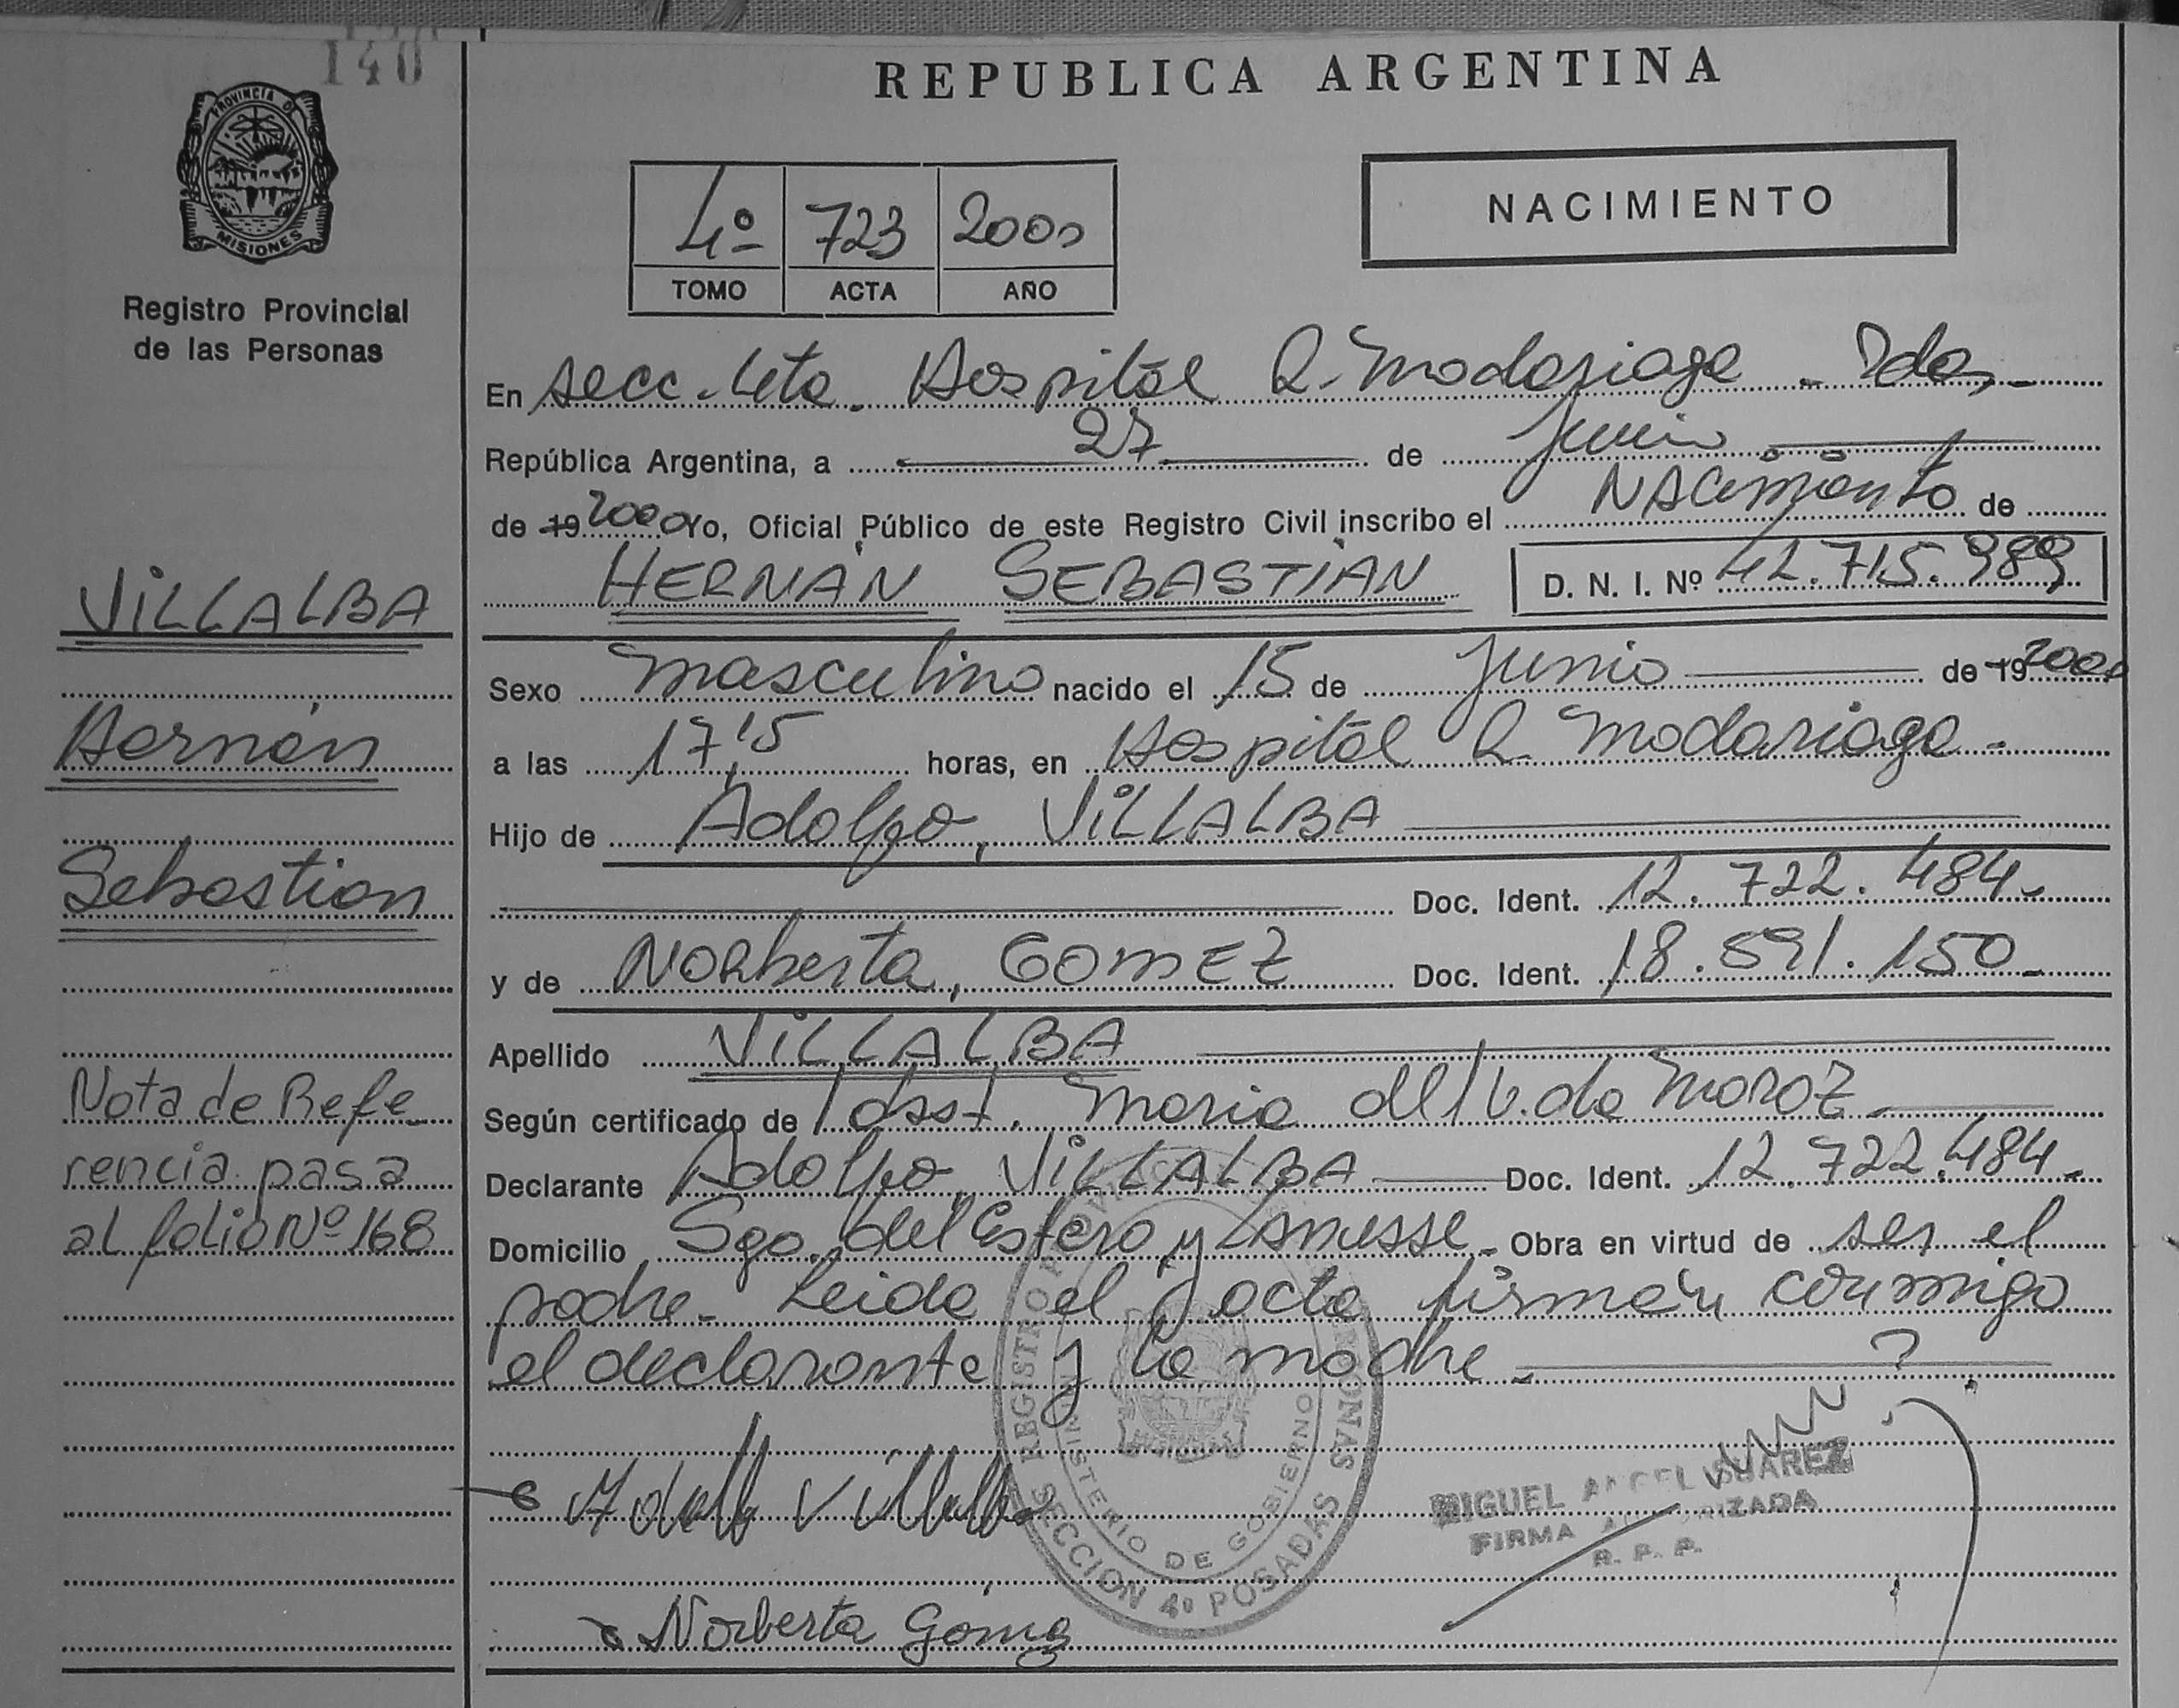 140
REPUBLICA ARGENTINA
PROVINCIA DE
MISIONES
Registro Provincial
de las Personas
4º 723 2000
TOMO ACTA AÑO
NACIMIENTO
En Secc. 4ta. Hospital R. Madariaga - Pdas -
República Argentina, a 27 de Junio
de 19 2000 Yo, Oficial Público de este Registro Civil inscribo el NACimiento de
HERNÁN SEBASTIÁN D. N. I. Nº 42.715.989
Sexo masculino nacido el 15 de Junio de 19 2000
a las 17,15 horas, en Hospital R. Madariaga -
Hijo de Adolfo, ViLLALBA
Doc. Ident. 12.722.484 -
y de Norberta, GOMEZ Doc. Ident. 18.591.150 -
Apellido ViLLALBA
Según certificado de Obst. Maria del V. de MoroZ -
Declarante Adolfo, ViLLALBA Doc. Ident. 12.722.484 -
Domicilio Sgo. del Estero y Lanusse - Obra en virtud de ser el
padre - Leida el acta firman conmigo
el declarante y la madre -
ViLLALBA
Hernán
Sebastian
Nota de Refe-
rencia pasa
al folio Nº 168
Adolfo Villalba
Norberta Gómez
MIGUEL ANGEL SUAREZ
FIRMA AUTORIZADA
R. P. P.
REGISTRO PERSONAS
MINISTERIO DE GOBIERNO
SECCION 4º POSADAS